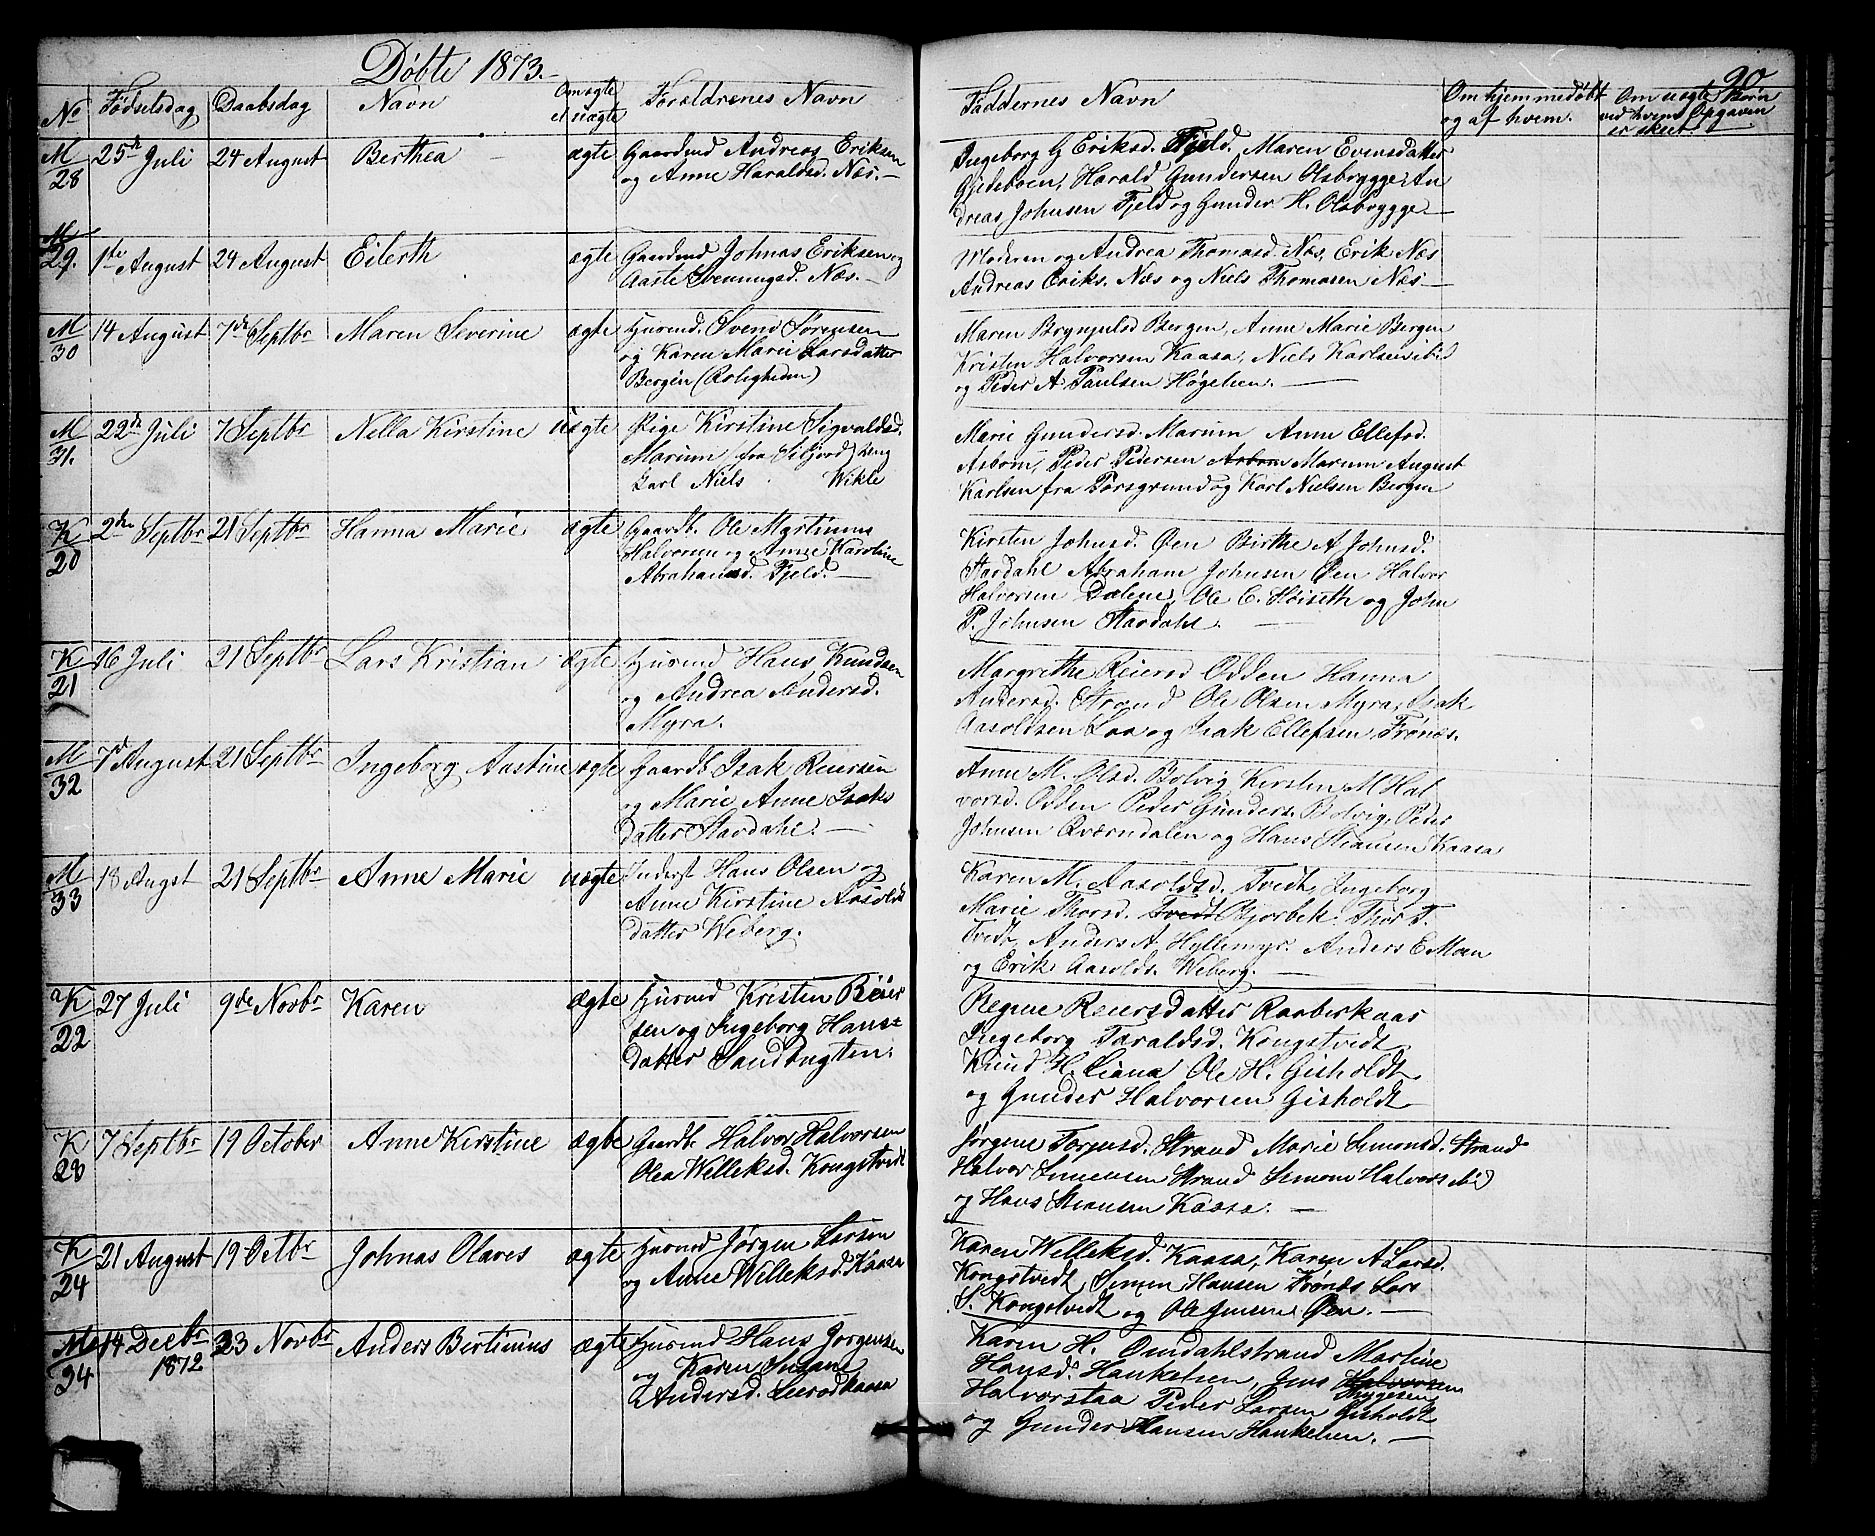 Døbte 1873.
90
No Fødselsdag Daabsdag Navn Om ægte el uægte Forældrenes Navn Faddernes Navn Om hjemmedøbt og af hvem. Om uægte Børn ved hvem Opgaven er skeet
M 28 25de Juli 24 August Berthea ægte Gaardmd Andreas Eriksen
og Anne Haraldsd. Næs.
Ingeborg G Eriksd. Fjeld. Maren Evensdatter
Gjeteboen, Harald Gundersen Olsbrygge, An
dreas Johnsen Fjeld og Gunder H. Olsbrygge
M 29. 1ste August 24 August Eilerth ægte Gaardmd Johnas Eriksen og
Aaste Svennugsd. Næs.
Moderen og Andrea Thomasd. Næs, Erik Næs
Andreas Eriks. Næs og Niels Thomasen Næs
M 30 14 August 7de Septbr Maren Severine ægte Husmd. Svend Sørensen
og Karen Marie Larsdatter
Bergen (Roligheden)
Maren Brynjulsd Bergen, Anne Marie Bergen
Kristen Halvorsen Kaasa, Niels Karlsen ibid
og Peder A. Paulsen Høgelien.
M 31. 22de Juli 7 Septbr Nella Kirstine uægte Pige Kirstine Sigvaldsd.
Marum (fra Siljord) Ung
Carl Niels Wikle
Marie Gundersd. Marum Anne Ellefsd.
Asbom, Peder Pedersen Asbom Marum August
Karlsen fra Porsgrund og Karl Nielsen Bergen
K 20 2den Septbr 21 Septbr Hanna Marie ægte Gaardb. Ole Martinus
Halvorsen og Anne Karoline
Abrahamsd. Fjeld.
Kirsten Johnsd. Øen Birthe A Johnsd.
Stavdahl Abraham Johnsen Øen Halvor
Halvorsen Dalene, Ole C. Høiseth og John
P. Johnsen Stavdahl.
K 21 16 Juli 21 Septbr Lars Kristian ægte Husmd Hans Knudsen
og Andrea Andersd.
Myra.
Margrethe Reiersd Odden Hanna
Andersd. Strand Ole Olsen Myra, Isak
Aasoldsen Laa og Isak Ellefsen Frønes.
M 32 7de August 21 Septbr Ingeborg Aastine ægte Gaardb Isak Reiersen
og Marie Anne Isaks
datter Stavdahl.
Anne M. Olsd. Bolvig, Kirsten M Hal
vorsd. Odden Peder Gunders. Bolvig, Peder
Johnsen Qværndalen og Hans Stiansen Kaasa
M 33 18 Augst 21 Septbr Anne Marie uægte Inderst Hans Olsen og
Anne Kirstine Aasolds
datter Weberg.
Karen M. Aasoldsd. Tvedt, Ingeborg
Marie Thorsd. Tvedt Bjorbek. Thor T.
Tvedt, Anders A, Hyllemyr. Anders E Moen
og Erik Aasolds. Weberg.
K 22 27 Juli 9de Novbr Karen ægte Husmd Kristen Reier
sen og Ingeborg Hans=
datter Sandbugten.
Regine Reiersdatter Raaberkaas
Ingeborg Taraldsd. Kongstvedt
Knud H. Liana Ole H. Gisholdt
og Gunder Halvorsen Gisholdt
K 23 7 Septbr 19 October Anne Kirstine ægte Gaardb. Halvor Halvorsen
Olea Welleksd. Kongstvedt
Jørgine Torgusd. Strand Marie Simonsd. Strand
Halvor Simensen Strand Simon Halvors ibid
og Hans Stiansen Kaasa.
K 24 21 August 19 Octbr Johnas Olaves ægte Husmd Jørgen Larsen
og Anne Welleksd. Kaasa
Karen Welleksd. Kaasa, Karen A Larsd.
Kongstvedt, Simen Hansen Frønes Lars
S. Kongstvedt og Ole Jensen Øen.
M 34 14 Decbr 1872 23 Novbr Anders Bertinius ægte Husmd Hans Jørgensen
og Karen Susane
Andersd. Leerodkaasa
Karen H. Omdahlstrand Martine
Hansd. Hankelien, Jens Halvorsen Tryggesen
Halvorstaa Peder Larsen Gisholdt
og Gunder Hansen Hankelien.